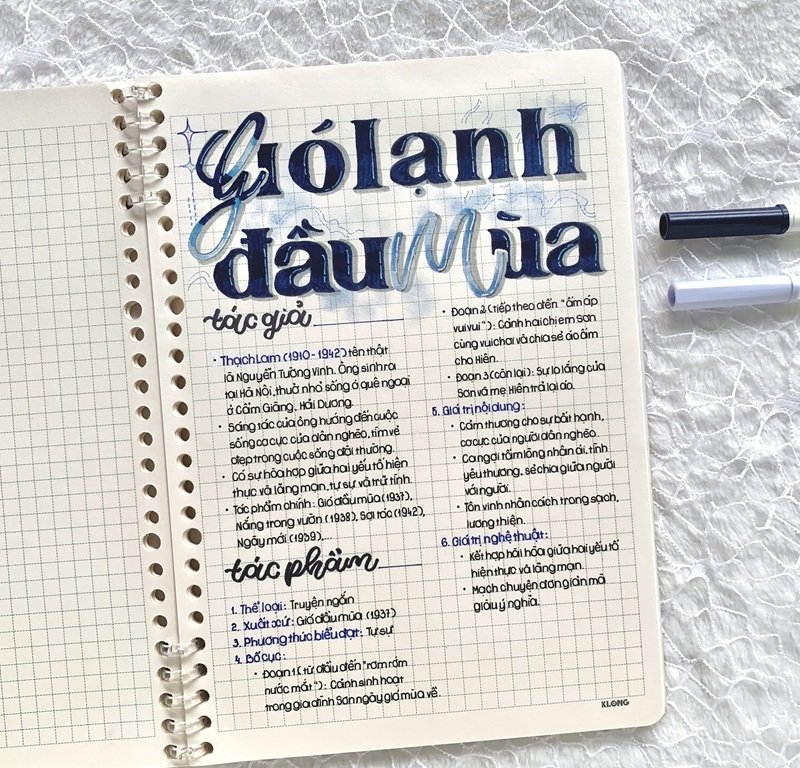 Gió lạnh
đầu Mùa
tác giả
• Thạch Lam (1910 - 1942) tên thật
là Nguyễn Tường Vinh. Ông sinh ra
tại Hà Nội, thuở nhỏ sống ở quê ngoại
ở Cẩm Giàng, Hải Dương.
• Sáng tác của ông hướng đến cuộc
sống cơ cực của dân nghèo, tìm vẻ
đẹp trong cuộc sống đời thường.
• Có sự hòa hợp giữa hai yếu tố hiện
thực và lãng mạn, tự sự và trữ tình.
• Tác phẩm chính: Gió đầu mùa (1937),
Nắng trong vườn (1938), Sợi tóc (1942),
Ngày mới (1939),...
tác phẩm
1. Thể loại: Truyện ngắn
2. Xuất xứ: Gió đầu mùa (1937)
3. Phương thức biểu đạt: Tự sự
4. Bố cục:
• Đoạn 1 (từ đầu đến "rơm rớm
nước mắt"): Cảnh sinh hoạt
trong gia đình Sơn ngày gió mùa về.
• Đoạn 2 (tiếp theo đến "ấm áp
vui vui"): Cảnh hai chị em Sơn
cùng vui chơi và chia sẻ áo ấm
cho Hiên.
• Đoạn 3 (còn lại): Sự lo lắng của
Sơn và mẹ Hiên trả lại áo.
5. Giá trị nội dung:
• Cảm thương cho sự bất hạnh,
cơ cực của người dân nghèo.
• Ca ngợi tấm lòng nhân ái, tình
yêu thương, sẻ chia giữa người
với người.
• Tôn vinh nhân cách trong sạch,
lương thiện.
6. Giá trị nghệ thuật:
• Kết hợp hài hòa giữa hai yếu tố
hiện thực và lãng mạn.
• Mạch chuyện đơn giản mà
giàu ý nghĩa.
KLONG